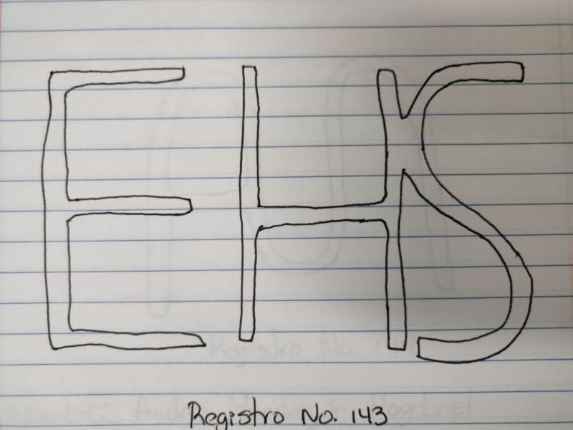 EHS
Registro No. 143